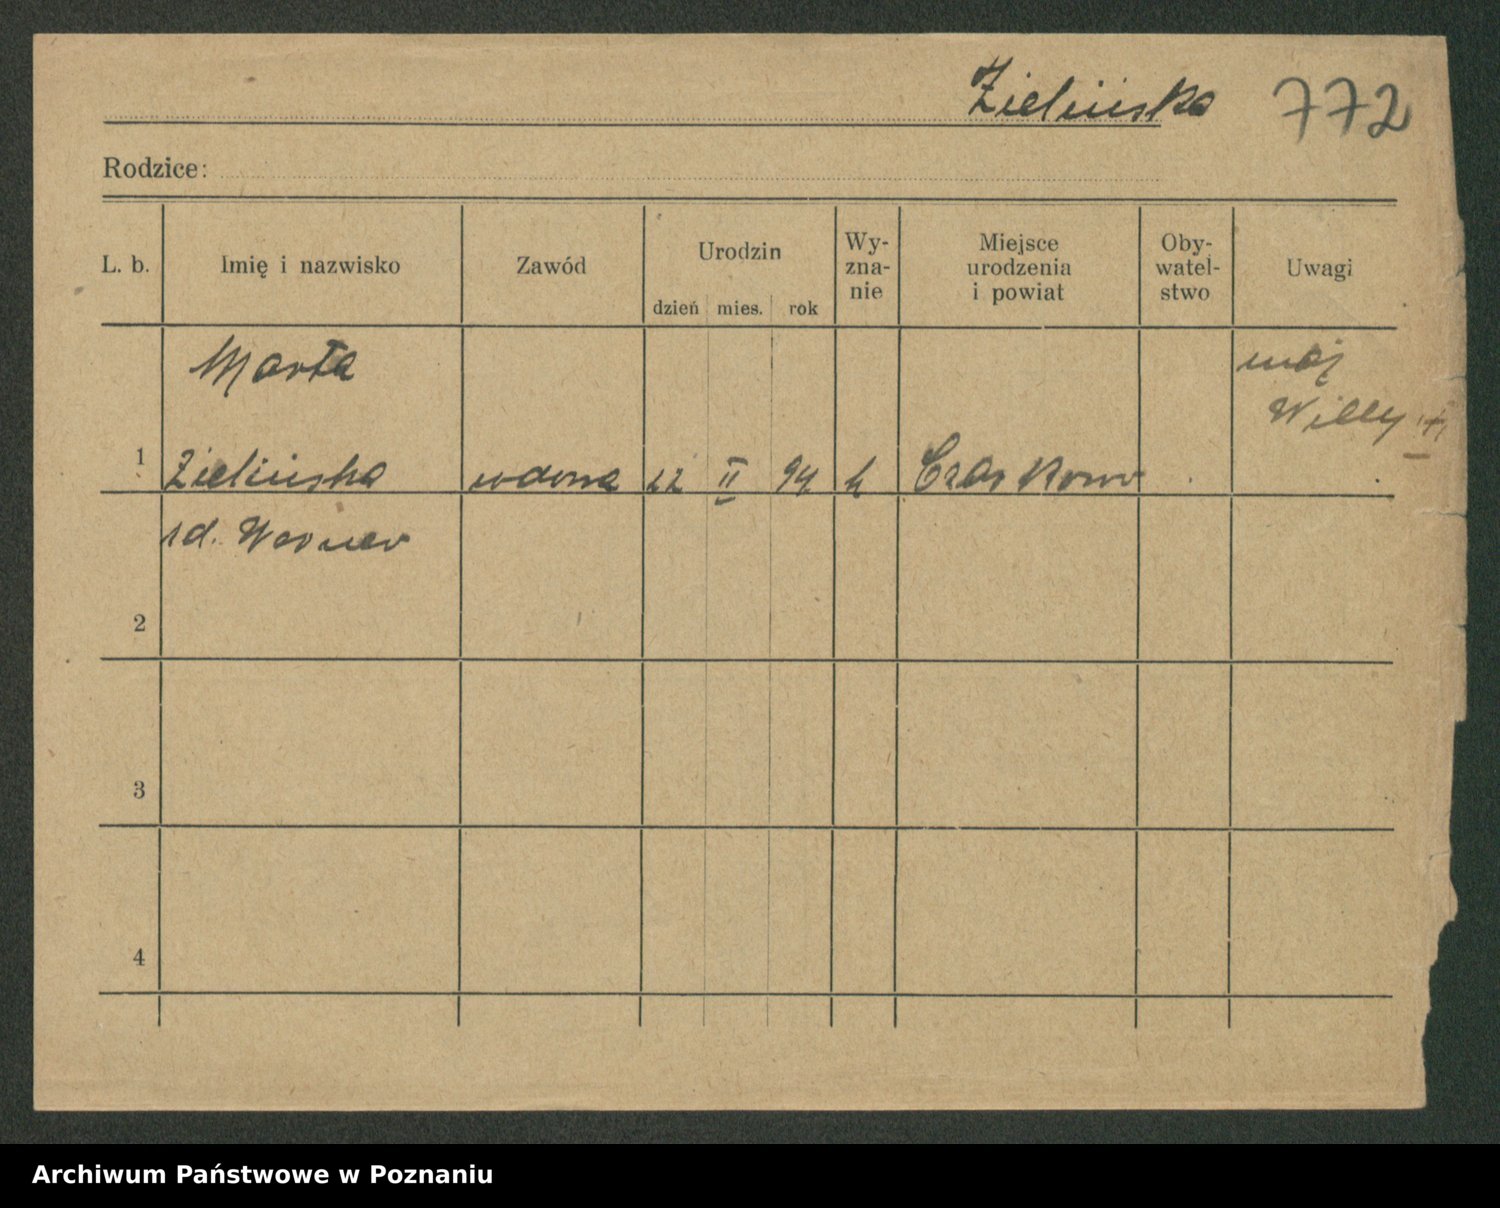 Zielińska 772
Rodzice:
L. b. Imię i nazwisko Zawód Urodzin dzień mies. rok Wy-zna-nie Miejsce urodzenia i powiat Oby-watel-stwo Uwagi
Marta mąż
Willy
1 Zielińska wdowa 12 II 94 k
zd. Werner
2
3
4
Archiwum Państwowe w Poznaniu